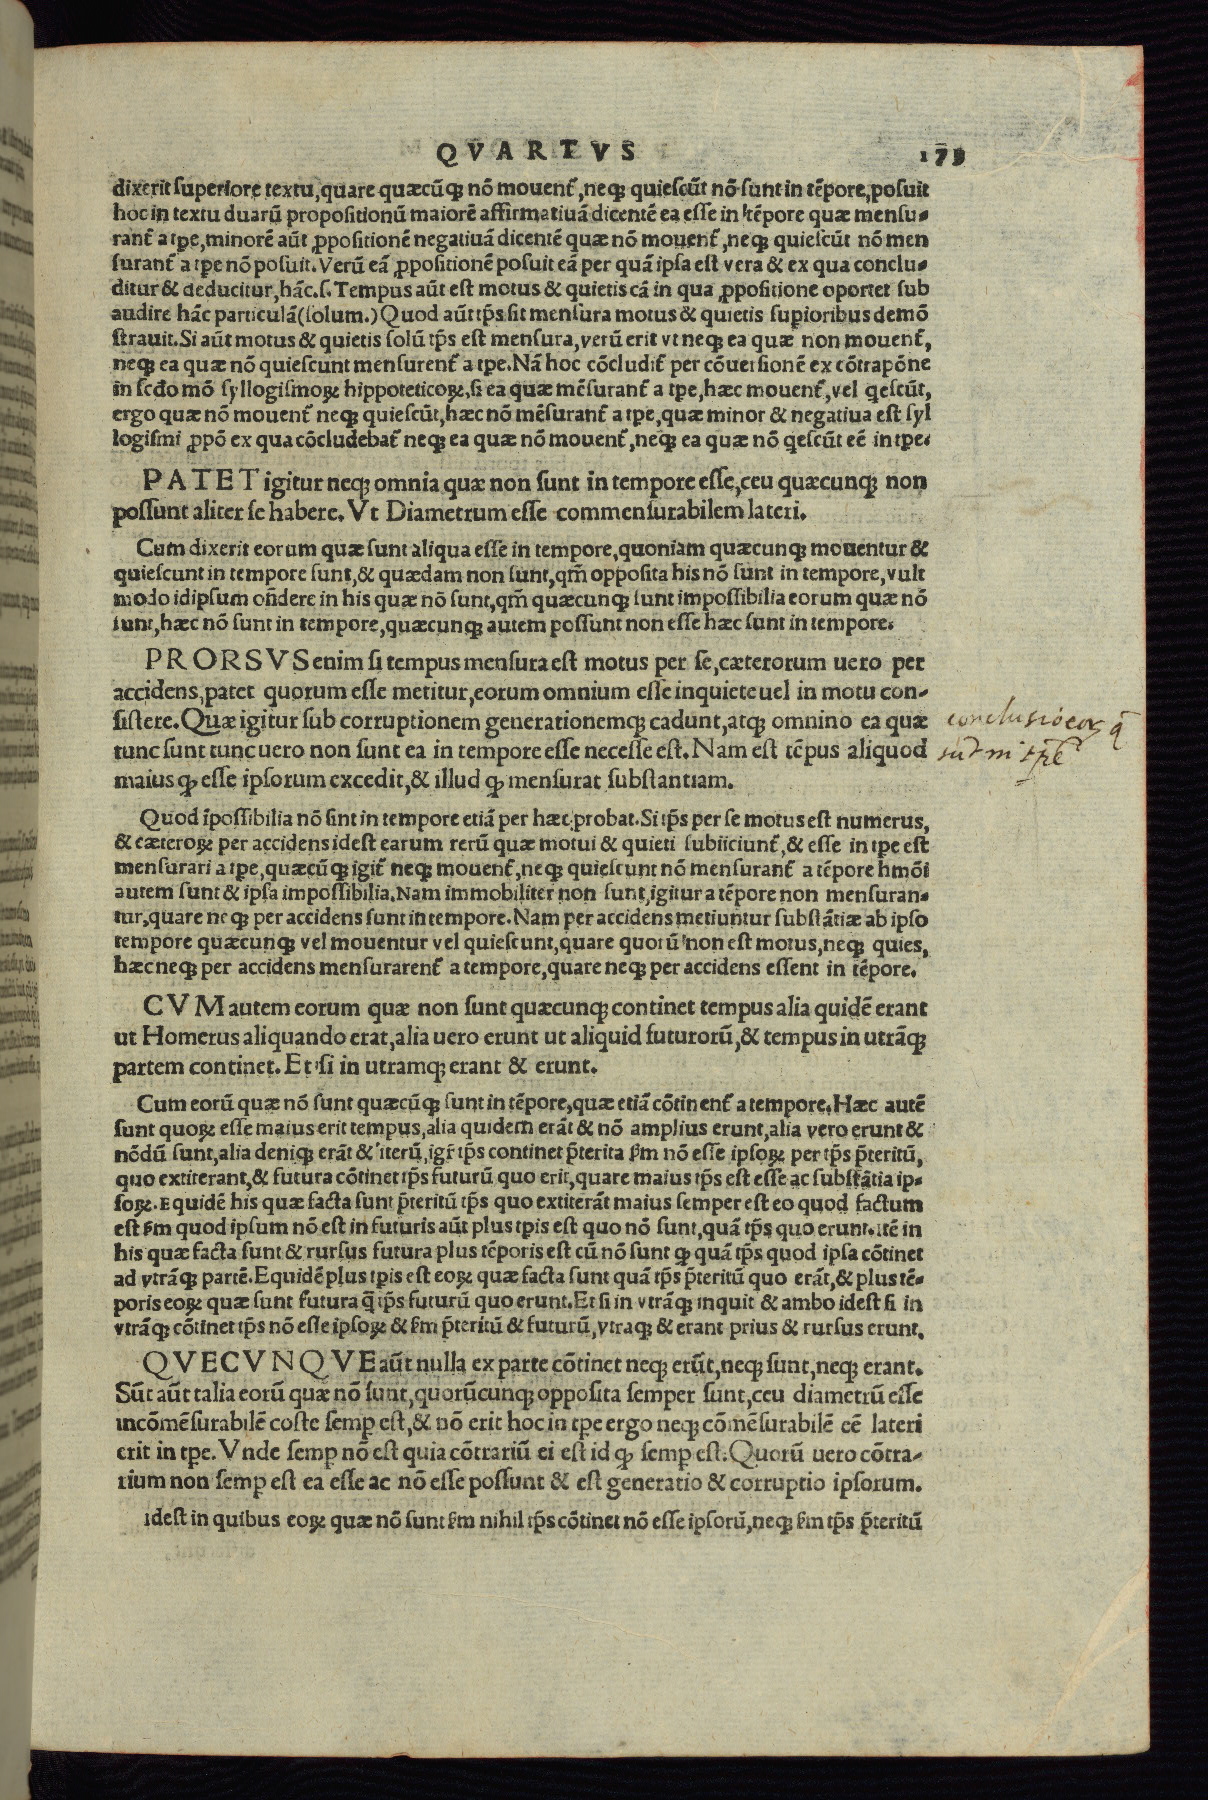 QVARTVS 179
dixerit superiore textu, quare quæcūqꝫ nō mouent᷑, neqꝫ quiescūt nō sunt in tēpore, posuit
hoc in textu duarū propositionū maiorē affirmatiuā dicentē ea esse in tēpore quæ mensu-
rant᷑ a tp̄e, minorē aūt ꝓpositionē negatiuā dicentē quæ nō mouent᷑, neqꝫ quiescūt nō men
surant᷑ a tp̄e nō posuit. Verū eā ꝓpositionē posuit eā per quā ipsa est vera & ex qua conclu-
ditur & deducitur, hāc.s. Tempus aūt est motus & quietis cā in qua ꝓpositione oportet sub
audire hāc particulā (solum.) Quod aūt tp̄s sit mensura motus & quietis suꝑioribus demō
strauit. Si aūt motus & quietis solū tp̄s est mensura, verū erit vt neqꝫ ea quæ non mouent᷑,
neqꝫ ea quæ nō quiescunt mensurent᷑ a tp̄e. Nā hoc cōcludit᷑ per cōuersionē ex cōtrapōne
in scd̄o mō syllogismoꝝ hippoteticoꝝ, si ea quæ mēsurant᷑ a tp̄e, hæc mouent᷑, vel q̄escūt,
ergo quæ nō mouent᷑ neqꝫ quiescūt, hæc nō mēsurant᷑ a tp̄e, quæ minor & negatiua est syl
logismi ꝓpō ex qua cōcludebat᷑ neqꝫ ea quæ nō mouent᷑, neqꝫ ea quæ nō q̄escūt eē in tp̄e.
PATET igitur neqꝫ omnia quæ non sunt in tempore esse, ceu quæcunqꝫ non
possunt aliter se habere. Vt Diametrum esse commensurabilem lateri.
Cum dixerit eorum quæ sunt aliqua esse in tempore, quoniam quæcunqꝫ mouentur &
quiescunt in tempore sunt, & quædam non sunt, qm̄ opposita his nō sunt in tempore, vult
modo idipsum on̄dere in his quæ nō sunt, qm̄ quæcunqꝫ sunt impossibilia eorum quæ nō
sunt, hæc nō sunt in tempore, quæcunqꝫ autem possunt non esse hæc sunt in tempore.
PRORSVS enim si tempus mensura est motus per se, cæterorum uero per
accidens, patet quorum esse metitur, eorum omnium esse inquiete uel in motu con-
sistere. Quæ igitur sub corruptionem generationemqꝫ cadunt, atqꝫ omnino ea quæ
tunc sunt tunc uero non sunt ea in tempore esse necesse est. Nam est tēpus aliquod
maius ꝙ esse ipsorum excedit, & illud ꝙ mensurat substantiam.
conclusio eoꝝ q̄
sūt in tp̄e
Quod īpossibilia nō sint in tempore etiā per hæc probat. Si tp̄s per se motus est numerus,
& cæteroꝝ per accidens idest earum rerū quæ motui & quieti subiiciunt᷑, & esse in tp̄e est
mensurari a tp̄e, quæcūqꝫ igit᷑ neqꝫ mouent᷑, neqꝫ quiescunt nō mensurant᷑ a tēpore hmōi
autem sunt & ipsa impossibilia. Nam immobiliter non sunt, igitur a tēpore non mensuran-
tur, quare neqꝫ per accidens sunt in tempore. Nam per accidens metiuntur substātiæ ab ipso
tempore quæcunqꝫ vel mouentur vel quiescunt, quare quorū non est motus, neqꝫ quies,
hæc neqꝫ per accidens mensurarent᷑ a tempore, quare neqꝫ per accidens essent in tēpore.
CVM autem eorum quæ non sunt quæcunqꝫ continet tempus alia quidē erant
ut Homerus aliquando erat, alia uero erunt ut aliquid futurorū, & tempus in utrāqꝫ
partem continet. Et si in utramqꝫ erant & erunt.
Cum eorū quæ nō sunt quæcūqꝫ sunt in tēpore, quæ etiā cōtinent᷑ a tempore. Hæc autē
sunt quoꝝ esse maius erit tempus, alia quidem erāt & nō amplius erunt, alia vero erunt &
nōdū sunt, alia deniqꝫ erāt & iterū, igr̄ tp̄s continet p̄terita ẜm nō esse ipsoꝝ per tp̄s p̄teritū,
quo extiterant, & futura cōtinet tp̄s futurū quo erit, quare maius tp̄s est esse ac substātia ip-
soꝝ. Equidē his quæ facta sunt p̄teritū tp̄s quo extiterāt maius semper est eo quod factum
est ẜm quod ipsum nō est in futuris aūt plus tp̄is est quo nō sunt, quā tp̄s quo erunt. itē in
his quæ facta sunt & rursus futura plus tēporis est cū nō sunt ꝙ quā tp̄s quod ipsa cōtinet
ad vtrāqꝫ partē. Equidē plus tp̄is est eoꝝ quæ facta sunt quā tp̄s p̄teritū quo erāt, & plus tē-
poris eoꝝ quæ sunt futura q̄ tp̄s futurū quo erunt. Et si in vtrāqꝫ inquit & ambo idest si in
vtrāqꝫ cōtinet tp̄s nō esse ipsoꝝ & ẜm p̄teritū & futurū, vtraqꝫ & erant prius & rursus erunt.
QVECVNQVE aūt nulla ex parte cōtinet neqꝫ erūt, neqꝫ sunt, neqꝫ erant.
Sūt aūt talia eorū quæ nō sunt, quorūcunqꝫ opposita semper sunt, ceu diametrū esse
incōmēsurabilē coste semꝑ est, & nō erit hoc in tp̄e ergo neqꝫ cōmēsurabilē eē lateri
erit in tp̄e. Vnde semꝑ nō est quia cōtrariū ei est id ꝙ semꝑ est. Quorū uero cōtra-
rium non semꝑ est ea esse ac nō esse possunt & est generatio & corruptio ipsorum.
idest in quibus eoꝝ quæ nō sunt ẜm nihil tp̄s cōtinet nō esse ipsorū, neqꝫ ẜm tp̄s p̄teritū